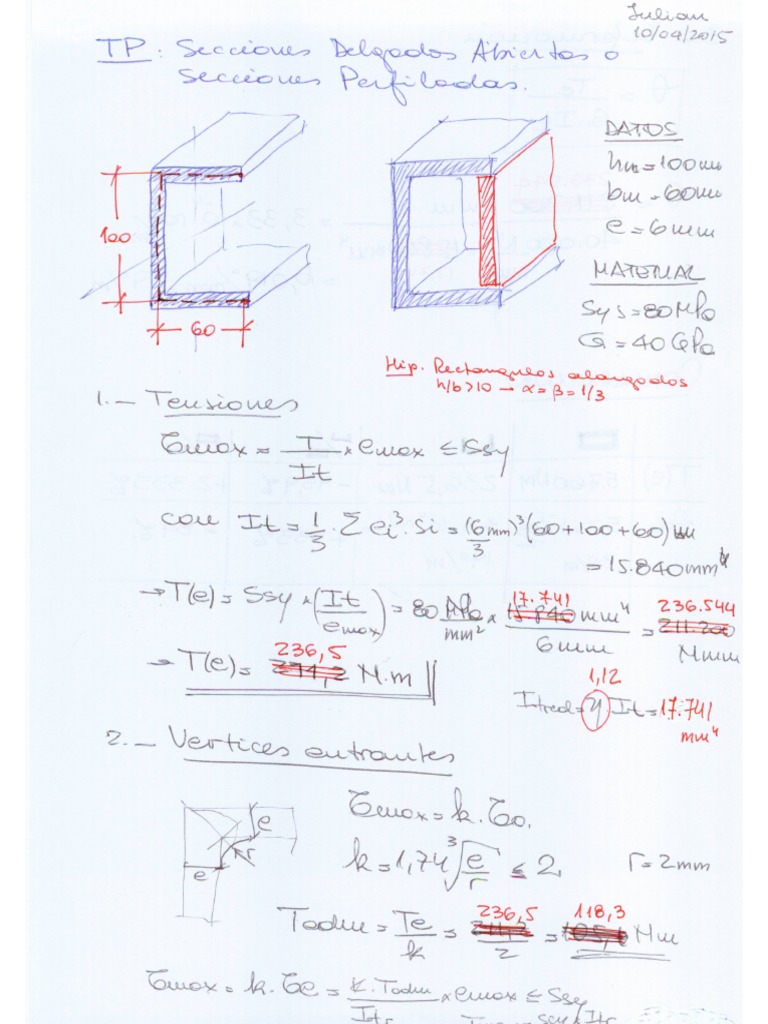 Julian
10/04/2015
TP: Secciones Delgadas Abiertas o
Secciones Perfiladas.
100
60
DATOS
hm = 100 mm
bm = 60 mm
e = 6 mm
MATERIAL
Sys = 80 MPa
G = 40 GPa
Hip. Rectangulos alargados
h/b > 10 → α = β = 1/3
1.- Tensiones
τmax = T/It × emax ≤ Ssy
con It = 1/3 · Σ ei³ · si = (6mm)³/3 (60 + 100 + 60) mm
= 15.840 mm⁴
→ T(e) = Ssy × (It/emax) = 80 MPa/mm² × 17.741 mm⁴ / 6 mm = 236.544 Nmm
→ T(e) = 236,5 N.m
1,12
Itred = η · It = 17.741 mm⁴
2.- Vertices entrantes
τmax = k · τo.
e
r
e
k = 1,74 ∛(e/r) ≤ 2
r = 2 mm
Tadm = Te/k = 236,5/2 = 118,3 Nm
τmax = k · τe = k · Tadm/Itr × emax ≤ Ssy